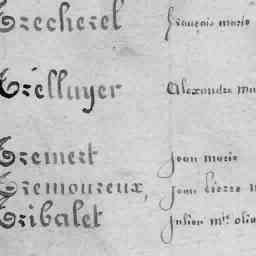 Trecherel François marie
Trélluyer Alexandre ma
Tremert Jean marie
Tremoureux, Jean Pierre m
Tribalet Julien mie oliv